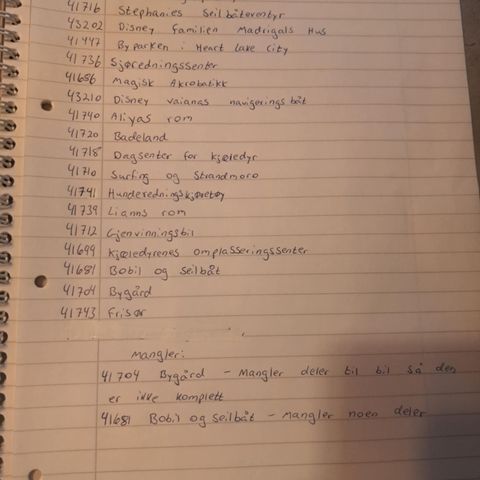 41716 Stephanies Seilbåteventyr
43202 Disney Familien Madrigals Hus
41447 Byparken i Heart Lake City
41736 Sjøredningssenter
41686 Magisk Akrobatikk
43210 Disney vaianas navigerings båt
41740 Aliyas rom
41720 Badeland
41718 Dagsenter for kjæledyr
41710 Surfing og Strandmoro
41741 Hunderedningskjøretøy
41739 Lianns rom
41712 Gjenvinningsbil
41699 Kjæledyrenes omplasseringssenter
41681 Bobil og Seilbåt
41704 Bygård
41743 Frisør
Mangler:
41704 Bygård - Mangler deler til bil så den
er ikke komplett
41681 Bobil og Seilbåt - Mangler noen deler